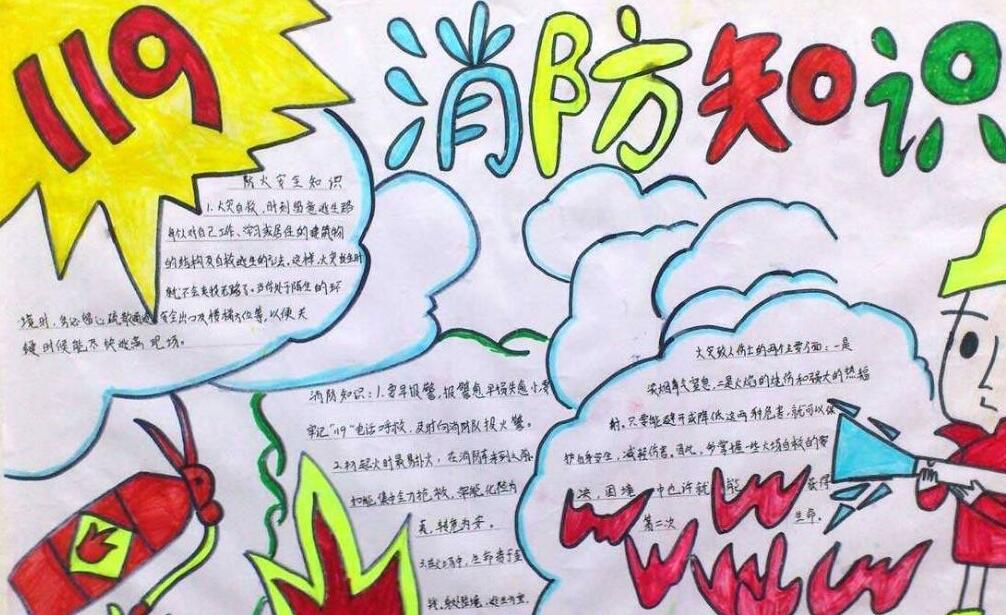 119
消防知识
防火安全知识
1.火灾自救，时刻留意逃生路
每个人对自己工作、学习或居住的建筑物
的结构及自救逃生的方法。这样，火灾发生时
就不会走投无路了。当你处于陌生的环
境时，务必留心疏散通道 安全出口及楼梯方位等，以便关
键时候能尽快逃离现场。
消防知识：1.要早报警，报警愈早损失愈小，要
牢记"119"电话呼救，及时向消防队报火警。
2.初起火时最易扑火，在消防车来到
如能集中全力抢救，常能化险为
夷，转危为安。
3.在火场中，生命
火灾致人伤亡的两个主要方面：一是
浓烟 窒息，二是火焰的烧伤和强大的热辐
射。只要能避开或降低这两种危害，就可以保
护自身安全，减轻伤害。因此，多掌握一些火场自救的要
决，困境 中也许就 能 获得
第二次 生命。